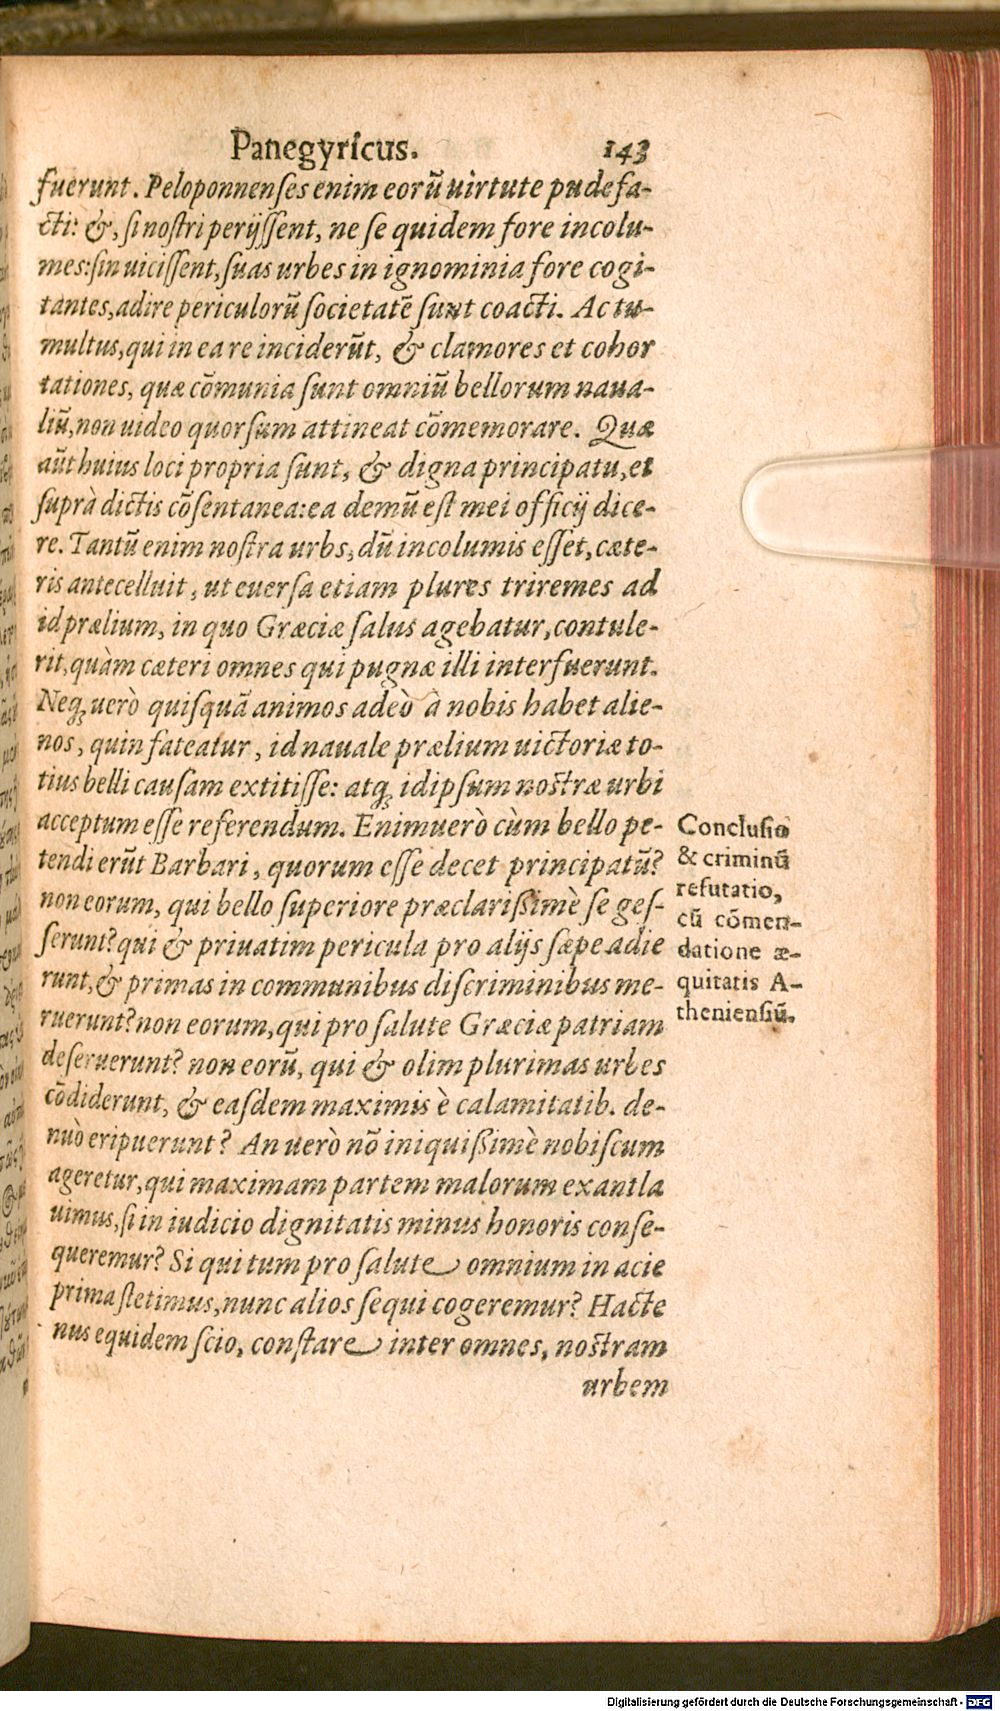 Panegyricus. 143
fuerunt. Peloponnenses enim eorũ uirtute pudefa-
cti: &, si nostri perijssent, ne se quidem fore incolu-
mes: sin uicissent, suas urbes in ignominia fore cogi-
tantes, adire periculorũ societatẽ sunt coacti. Ac tu-
multus, qui in ea re inciderũt, & clamores et cohor
tationes, quæ cõmunia sunt omniũ bellorum naua-
liũ, non uideo quorsum attineat cõmemorare. Quæ
aũt huius loci propria sunt, & digna principatu, et
suprà dictis cõsentanea: ea demũ est mei officij dice-
re. Tantũ enim nostra urbs, dũ incolumis esset, cæte-
ris antecelluit, ut euersa etiam plures triremes ad
id prælium, in quo Græciæ salus agebatur, contule-
rit, quàm cæteri omnes qui pugnæ illi interfuerunt.
Neqꝫ uerò quisquã animos adeò à nobis habet alie-
nos, quin fateatur, id nauale prælium uictoriæ to-
tius belli causam extitisse: atqꝫ id ipsum nostræ urbi
acceptum esse referendum. Enimuerò cùm bello pe-
tendi erũt Barbari, quorum esse decet principatũ?
non eorum, qui bello superiore præclarißimè se ges-
serunt? qui & priuatim pericula pro alijs sæpe adie
runt, & primas in communibus discriminibus me-
ruerunt? non eorum, qui pro salute Græciæ patriam
deseruerunt? non eorũ, qui & olim plurimas urbes
cõdiderunt, & easdem maximis è calamitatib. de-
nuò eripuerunt? An uerò nõ iniquißimè nobiscum
ageretur, qui maximam partem malorum exantla
uimus, si in iudicio dignitatis minus honoris conse-
queremur? Si qui tum pro salute omnium in acie
prima stetimus, nunc alios sequi cogeremur? Hacte
nus equidem scio, constare inter omnes, nostram
urbem
Conclusio
& criminũ
refutatio,
cũ cõmen-
datione æ-
quitatis A-
theniensiũ.
Digitalisierung gefördert durch die Deutsche Forschungsgemeinschaft - DFG